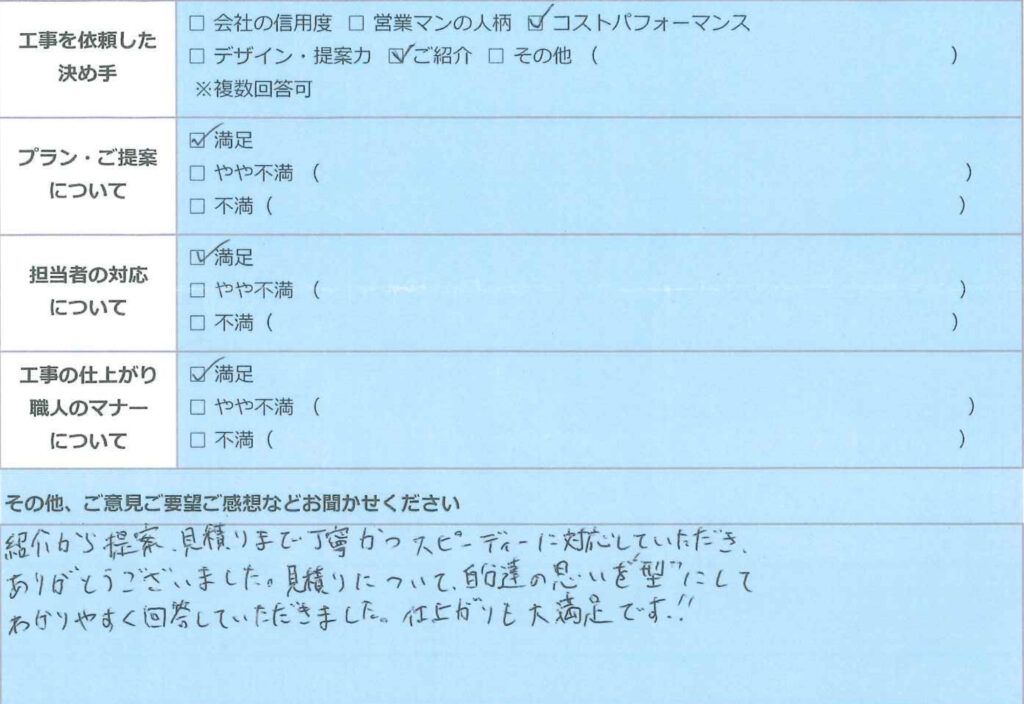 工事を依頼した
決め手
□ 会社の信用度 □ 営業マンの人柄 ☑ コストパフォーマンス
□ デザイン・提案力 ☑ ご紹介 □ その他 ( )
※複数回答可
プラン・ご提案
について
☑ 満足
□ やや不満 ( )
□ 不満 ( )
担当者の対応
について
☑ 満足
□ やや不満 ( )
□ 不満 ( )
工事の仕上がり
職人のマナー
について
☑ 満足
□ やや不満 ( )
□ 不満 ( )
その他、ご意見ご要望ご感想などお聞かせください
紹介から提案、見積りまで丁寧かつスピーディーに対応していただき、
ありがとうございました。見積りについて、自分達の思いを"型"にして
わかりやすく回答していただきました。仕上がりも大満足です!!